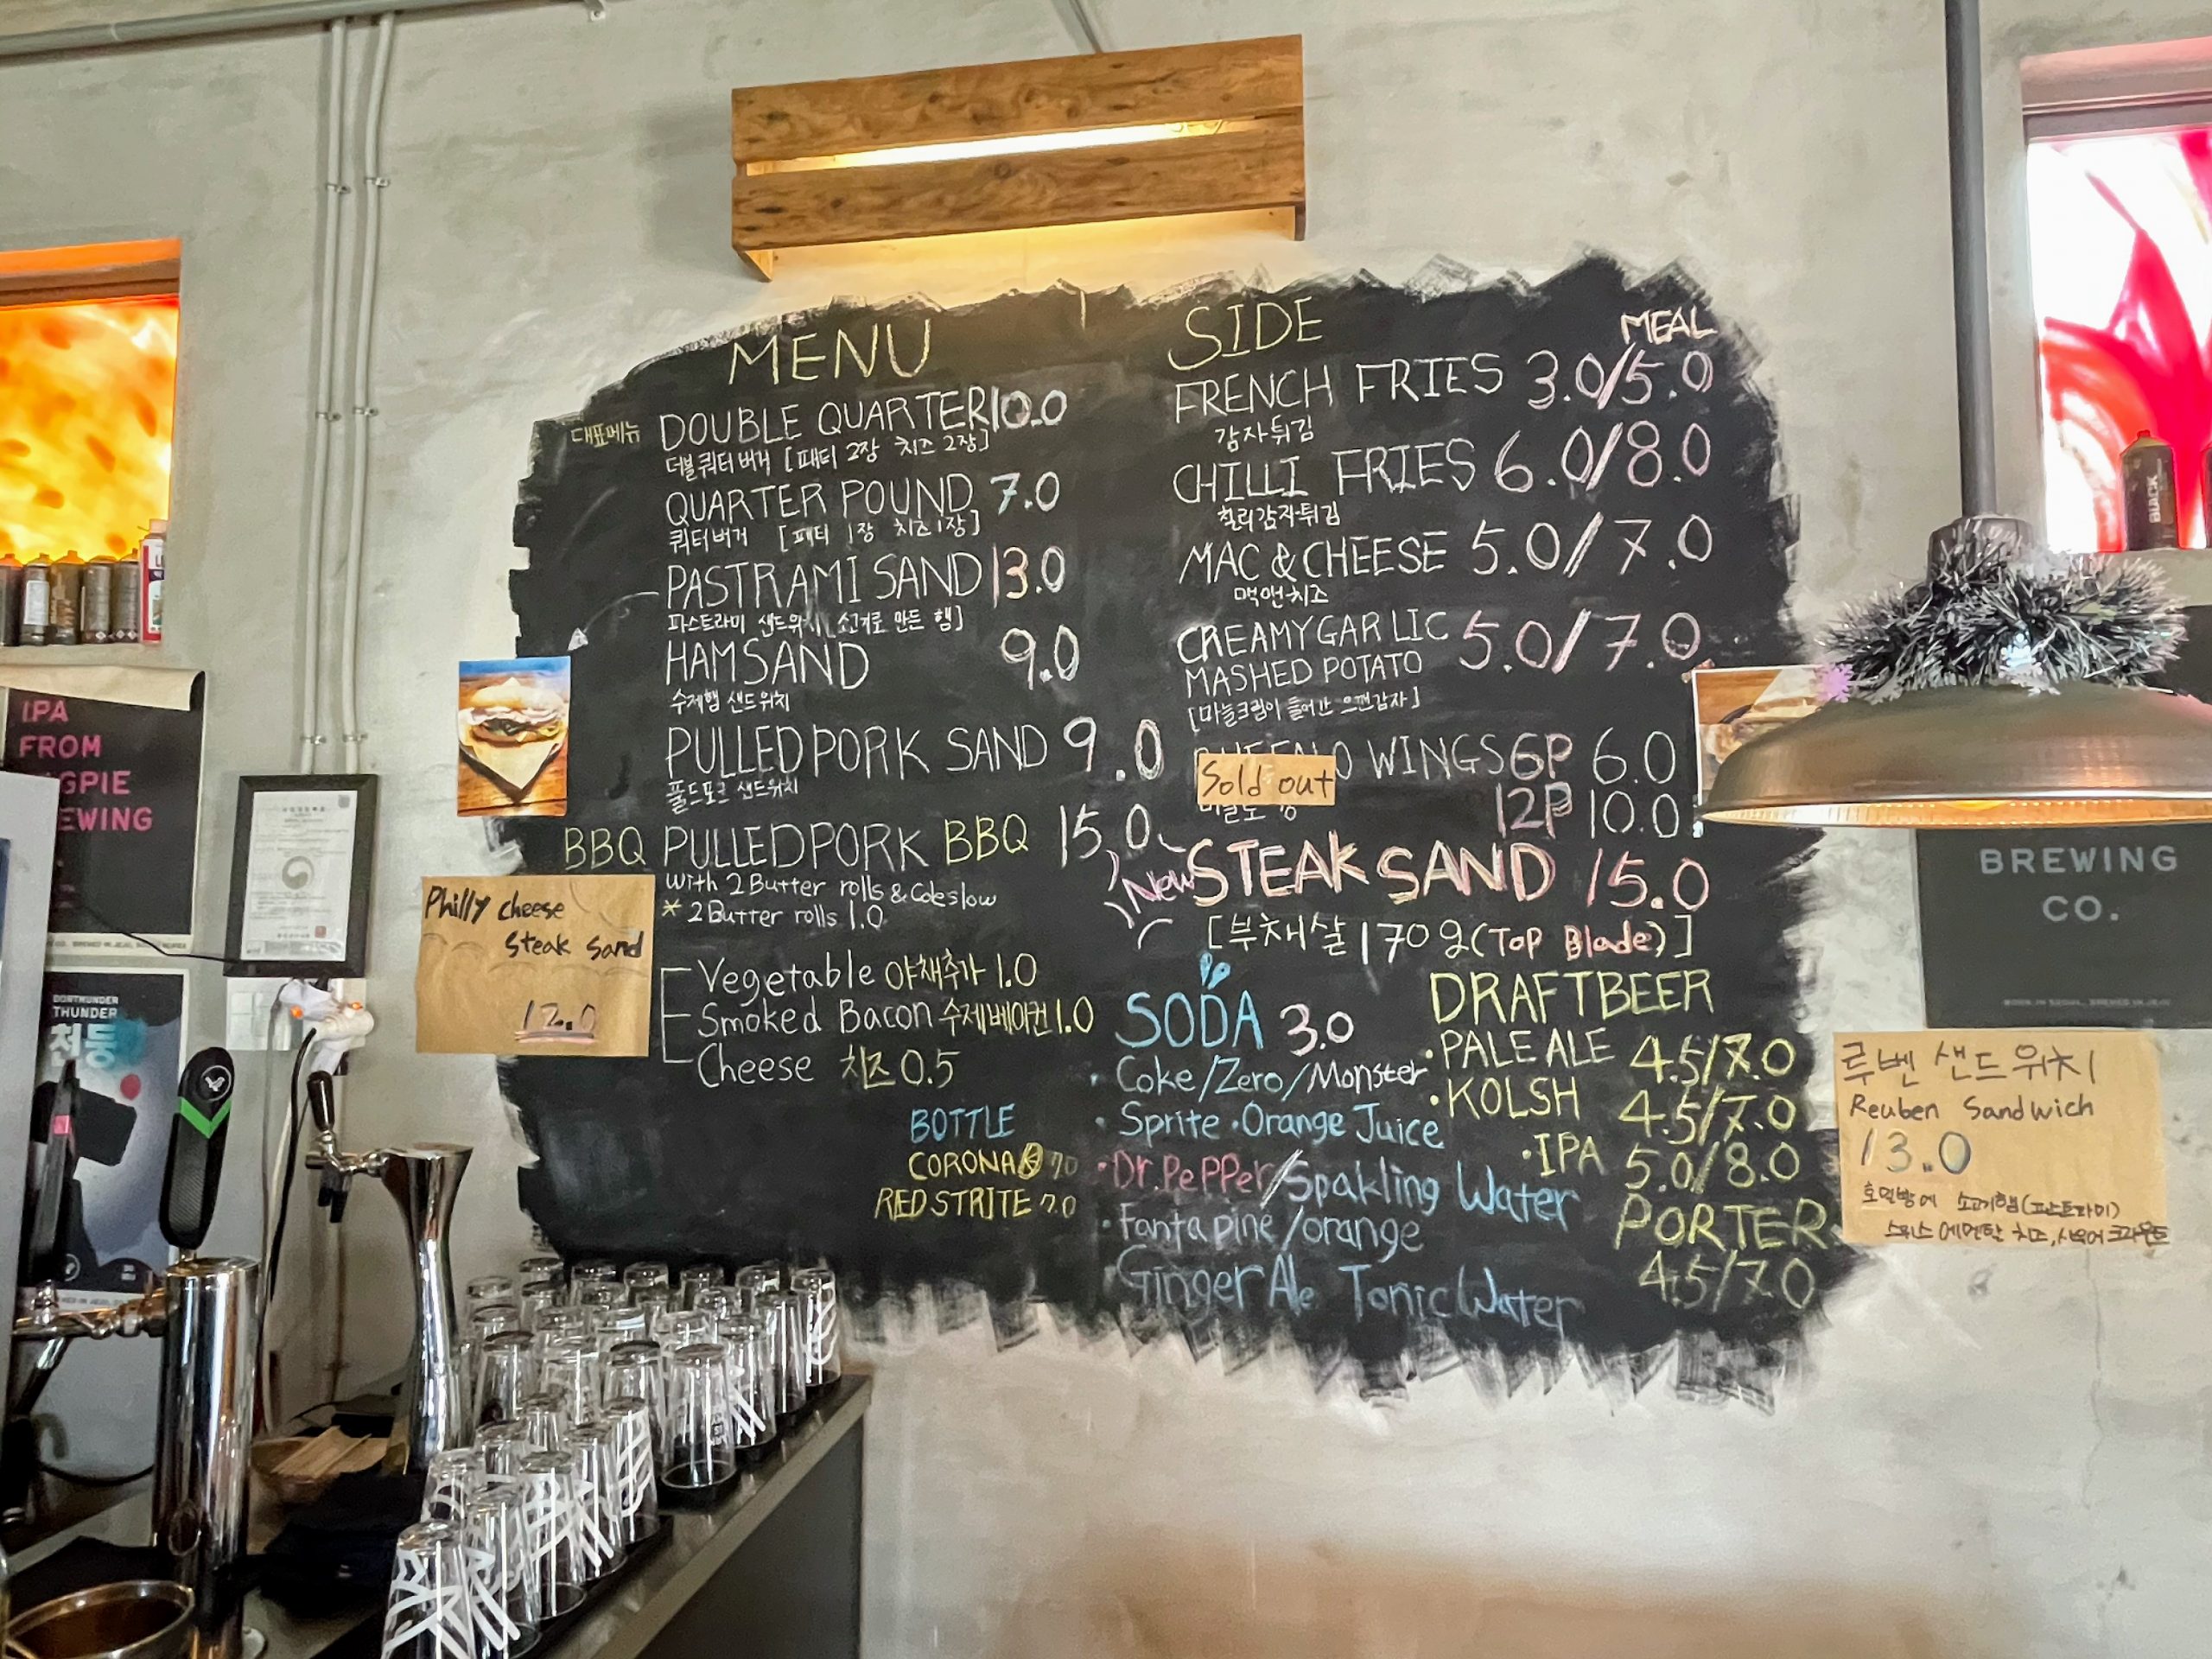 MENU
대표메뉴 DOUBLE QUARTER 10.0
더블쿼터버거 [패티 2장 치즈 2장]
QUARTER POUND 7.0
쿼터버거 [패티 1장 치즈 1장]
PASTRAMI SAND 13.0
파스트라미 샌드위치 [소고기로 만든 햄]
HAM SAND 9.0
수제햄 샌드위치
PULLED PORK SAND 9.0
풀드포크 샌드위치
BBQ PULLED PORK BBQ 15.0
with 2 Butter rolls & Coleslow
* 2 Butter rolls 1.0
Vegetable 야채추가 1.0
Smoked Bacon 수제베이컨 1.0
Cheese 치즈 0.5
BOTTLE
CORONA 7.0
RED STRITE 7.0
SIDE
MEAL
FRENCH FRIES 3.0/5.0
감자튀김
CHILLI FRIES 6.0/8.0
칠리감자튀김
MAC & CHEESE 5.0/7.0
맥앤치즈
CREAMY GARLIC 5.0/7.0
MASHED POTATO
[마늘크림이 들어간 으깬감자]
Sold out
WINGS 6P 6.0
12P 10.0
New STEAK SAND 15.0
[부채살 170g (Top Blade)]
SODA 3.0
· Coke/Zero/Monster
· Sprite · Orange Juice
· Dr.PePPer/Spakling Water
· Fanta pine/orange
Ginger Ale Tonic Water
DRAFT BEER
· PALE ALE 4.5/7.0
· KOLSH 4.5/7.0
· IPA 5.0/8.0
PORTER
4.5/7.0
Philly cheese
steak sand
12.0
루벤 샌드위치
Reuben Sandwich
13.0
호밀빵에 소고기햄(파스트라미)
스위스 에멘탈 치즈, 사워크라우트
IPA
FROM
GPIE
EWING
DORTMUNDER
THUNDER
천둥
BLACK
BREWING
CO.